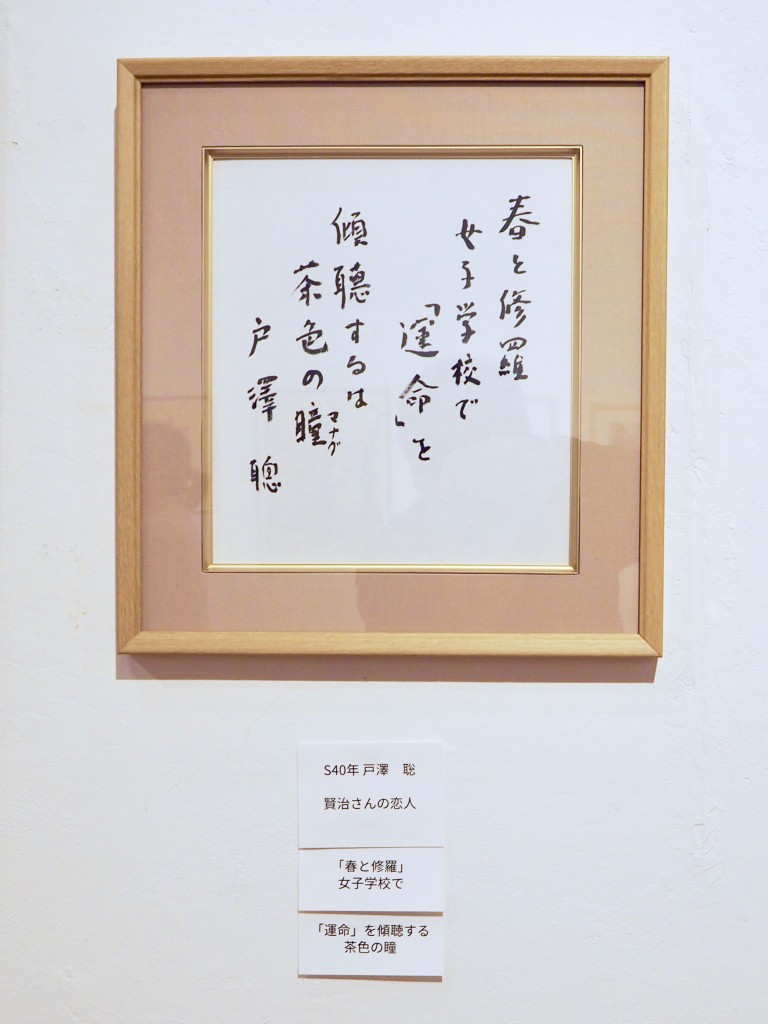 春と修羅
女子学校で
「運命」を
傾聴するは
茶色の瞳
マナグ
戸澤聰
S40年 戸澤　聡
賢治さんの恋人
「春と修羅」
女子学校で
「運命」を傾聴する
茶色の瞳